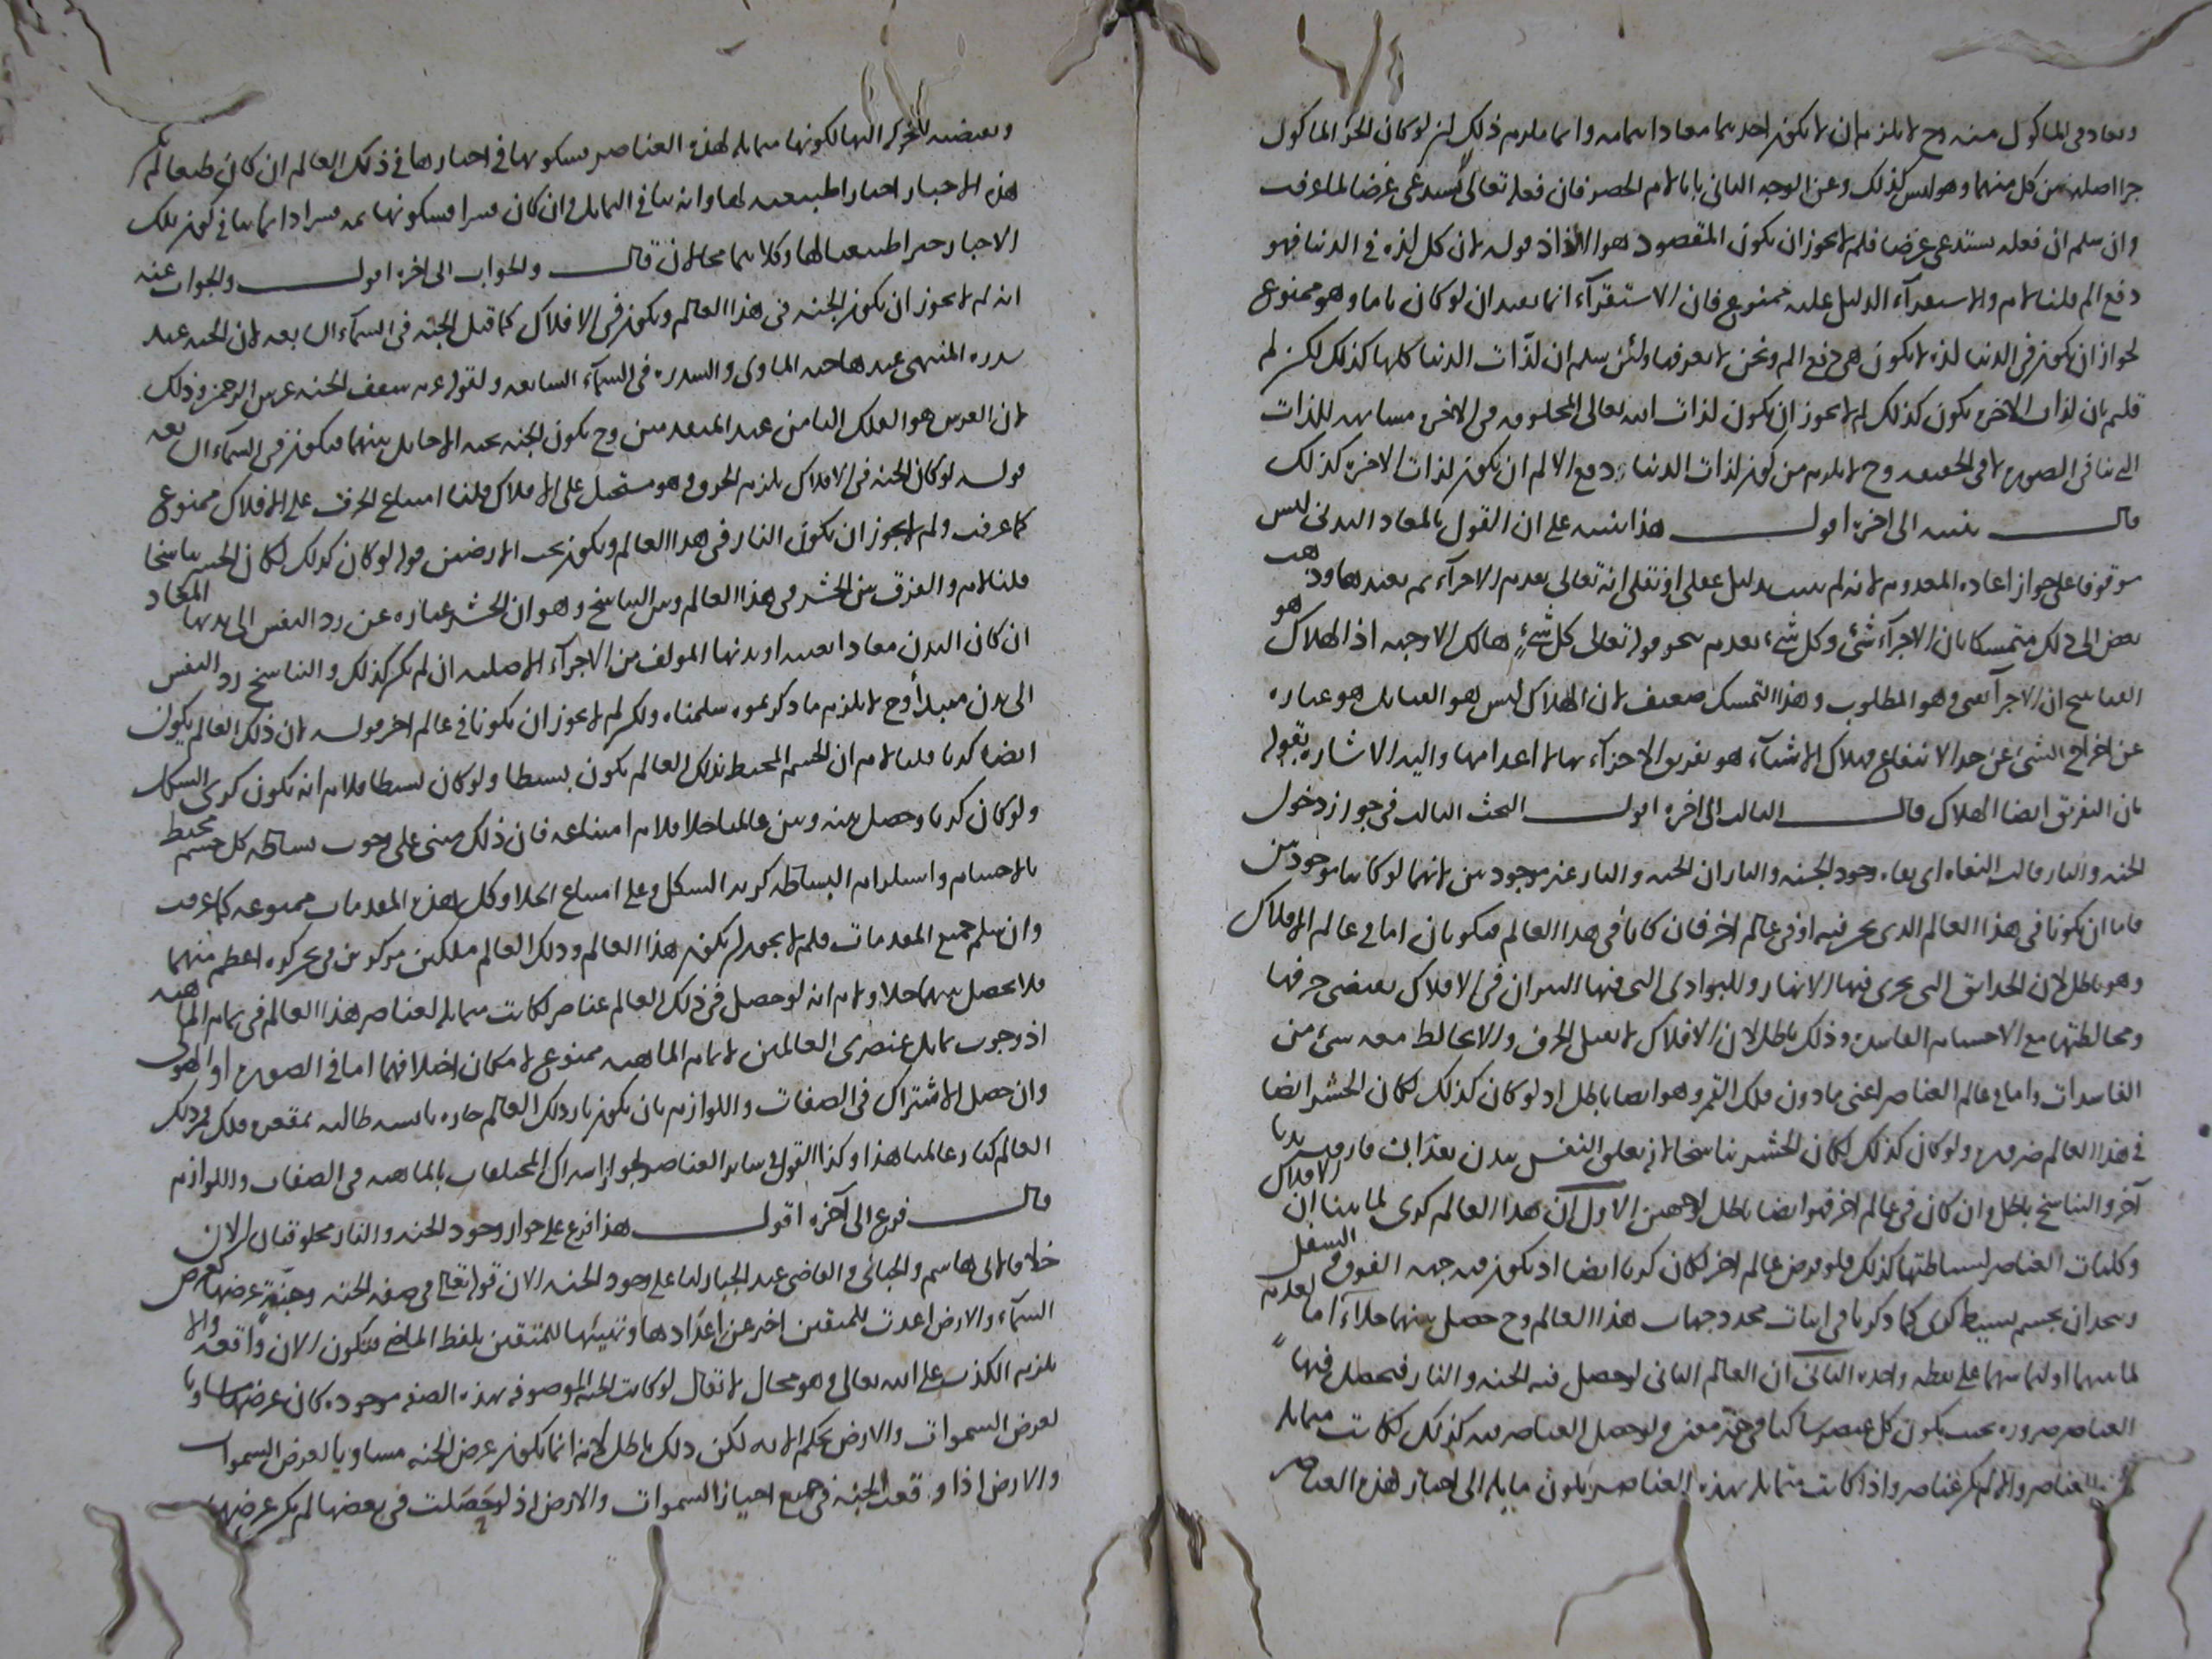 ويعاد في الماكول منه وح لا يلزم ان لا يكون احدهما معادا بتمامه وانما يلزم ذلك ان لو كان الجزء الماكول
جزا اصليا من كل منهما وهو ليس كذلك وعن الوجه الثاني بانا لانم الحصر فان فعله تعالى لا يستدعى غرضا لما عرفت
وان سلم ان فعله يستدعى غرضا فلم لا يجوز ان يكون المقصود هو الالذاذ قوله لان كل لذة في الدنيا فهو
دفع الم قلنا لانم والاستقرآء الدليل عليه ممنوع فان الاستقرآء انما يفيد ان لو كان تاما وهو ممنوع
لجواز ان يكون في الدنيا لذة لا يكون هى دفع الم ونحن لا نعرفها ولئن سلم ان لذّات الدنيا كلها كذلك لكن لم
قلتم بان لذات الاخرة يكون كذلك لم لا يجوز ان يكون لذات الله تعالى المخلوقه في الاخرة مشابهه للذات
الدنيا في الصورة لا في الحقيقه وح لا يلزم من كون لذات الدنيا دفع الالم ان يكون لذات الاخرة كذلك
قال تنبيه الى اخره اقول هذا تنبيه على ان القول بالمعاد البدنى ليس
موقوفا على جواز اعاده المعدوم لانه لم يثبت بدليل عقلى او نقلى انه تعالى يعدم الاجزآء ثم يعيدها وذهب
بعض الى ذلك متمسكا بان الاجزآء شئ وكل شئ يعدم بنحو قوله تعالى كل شئ هالك الا وجهه اذ الهلاك هو
الفنا ينتج ان الاجزآ تفنى وهو المطلوب وهذا التمسك ضعيف لان الهلاك ليس هو الفنا بل هو عباره
عن اخراج الشئ عن حد الانتفاع فهلاك الاشيآء هو تفريق الاجزآء بها لا اعدامها واليه الاشاره بقوله
بان التفريق ايضا اهلاك قال الثالث الى اخره اقول البحث الثالث في جواز دخول
الجنه والنار قالت النفاه اى نفاه وجود الجنه والنار ان الجنه والنار غير موجودتين لانهما لو كانتا موجودتين
فاما ان يكونا في هذا العالم الذى نحن فيه او في عالم اخر فان كانا في هذا العالم فيكونان اما في عالم الافلاك
وهو باطل لان الحدائق التى يجرى فيها الانهار والبوادى التى فيها النيران في الافلاك يقتضى خرقها
ومخالطتها مع الاجسام الفاسدة وذلك باطل لان الافلاك لا يقبل الخرق ولا يخالط معه شئ من
الفاسدات واما في عالم العناصر اعنى ما دون فلك القمر وهو ايضا باطل اذ لو كان كذلك لكان الحشر ايضا
في هذا العالم ضرورة ولو كان كذلك لكان الحشر تناسخا لانه تعلق النفس ببدن بعد ان فارقت بدنا
آخر والتناسخ باطل وان كان في عالم اخر فهو ايضا باطل لوجهين الاول ان هذا العالم كرى لما بينا ان الافلاك
وكليات العناصر لبساطتها كذلك فلو فرض عالم اخر لكان كريا ايضا اذ يكون فيه جهه الفوق والسفل
ويتحددان بجسم بسيط كرى كما ذكرنا في اثبات محدد جهات هذا العالم وح حصل بينهما خلاء اما لعدم
تماسهما او لتماسهما على نقطه واحده الثانى ان العالم الثانى لو حصل فيه الجنه والنار فيحصل فيها
العناصر ضروره بحيث يكون كل عنصر ساكنا في حيز معين ولو حصل العناصر فيه كذلك لكانت مماثله
لهذه العناصر والا لم يكن عناصر واذا كانت مماثله لهذه العناصر يكون مايله الى احياز هذه العناصر
ويقتضيه للحركه اليها لكونها مماثله لهذه العناصر فسكونها في احيازها في ذلك العالم ان كان طبعا لم يكن
هذه الاحياز احيازا طبيعيه لها وانه ينافي التماثل وان كان قسرا فسكونها ثمه قسرا دائما ينافي كون تلك
الاحياز حيزا طبيعيا لها وكلاهما محالان قال والجواب الى اخره اقول والجواب عنه
انه لم لا يجوز ان يكون الجنه في هذا العالم ويكون في الافلاك كما قيل الجنه في السمآء السابعه لان الجنه عند
سدره المنتهى عندها جنه الماوى والسدره في السمآء السابعه ولقوله عم سقف الجنه عرش الرحمن وذلك
لان العرش هو الفلك الثامن عند المتقدمين وح يكون الجنه تحته الا حايل بينهما فيكون في السمآء السابعه
قوله لو كان الجنه في الافلاك يلزم الخرق وهو مستحيل على الافلاك قلنا امتناع الخرق على الافلاك ممنوع
كما عرفت ولم لا يجوز ان يكون النار في هذا العالم ويكون تحت الارضين قوله لو كان كذلك لكان الحشر تناسخا
قلنا لانم والفرق بين الحشر في هذا العالم وبين التناسخ وهو ان الحشر عباره عن رد النفس الى بدنها المعاد
ان كان البدن معادا بعينه او بدنها المولف من الاجزآء الاصليه ان لم يكن كذلك والتناسخ رد النفس
الى بدن مبتدأ وح لا يلزم ما ذكرتموه سلمناه ولكن لم لا يجوز ان يكونا في عالم اخر قوله لان ذلك العالم يكون
ايضا كريا قلنا لانم ان الجسم المحيط بذلك العالم يكون بسيطا ولو كان بسيطا فلانم انه يكون كرى الشكل
ولو كان كريا وحصل بينه وبين عالمنا خلا فلانم امتناعه فان ذلك مبنى على وجوب بساطه كل جسم محيط
بالاجسام واستلزام البساطه كريه الشكل وعلى امتناع الخلا وكل هذه المقدمات ممنوعه كما عرفت
وان سلم جميع المقدمات فلم لا يجوز ان يكون هذا العالم وذلك العالم فلكين مركوزين في نحو كره اعظم منهما
فلا يحصل بينهما خلا ولانم انه لو حصل في ذلك العالم عناصر لكانت مماثله لعناصر هذا العالم في تمام الماهيه
اذ وجوب تماثل عنصرى العالمين لا تمام الماهيه ممنوع لامكان اختلافهما اما في الصوره او الهيولى
وان حصل الاشتراك في الصفات واللوازم بان يكون نار ذلك العالم حاره يابسه طالبه بمقعر فلك قمر ذلك
العالم كنار عالمنا هذا وكذا القول في ساير العناصر لجواز اشتراك المختلفات بالماهيه في الصفات واللوازم
قال فرع الى آخره اقول هذا فرع على جواز وجود الجنه والنار مخلوقتان الان
خلافا لابى هاشم والجبائى والقاضى عبد الجبار لنا على وجود الجنه الان قوله تعالى في صفه الجنه وجنّةٍ عرضها كعرض
السمآء والارض اعدت للمتقين اخبر عن اعدادها وتهيئها للمتقين بلفظ الماضى فيكون الان واقعه والا
يلزم الكذب على الله تعالى وهو محال لا يقال لو كانت الجنه الموصوفه بهذه الصفه موجوده كان عرضها مساويا
لعرض السموات والارض بحكم الايه لكن ذلك باطل لانه انما يكون عرض الجنه مساويا لعرض السموات
والارض اذا وقعت الجنه في جميع احياز السموات والارض اذ لو حصلت في بعضها لم يكن عرضها